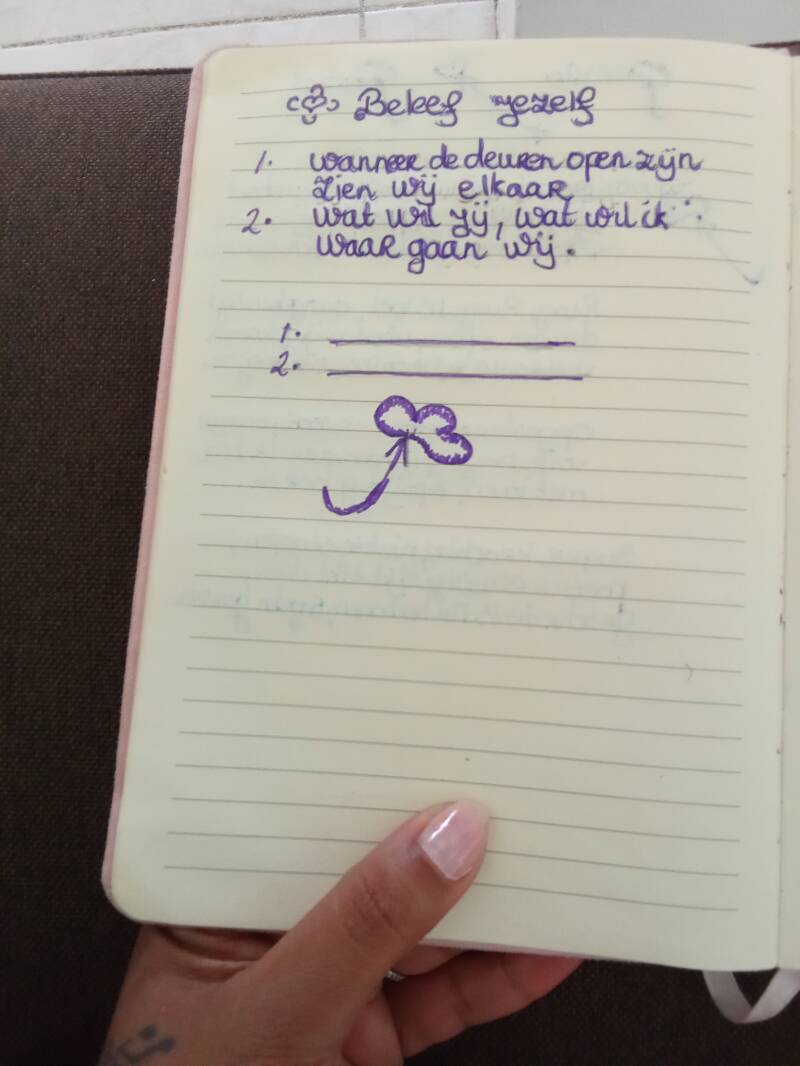 Beleef jezelf
1. wanneer de deuren open zijn
zien wij elkaar
2. wat wil jij, wat wil ik
waar gaan wij.
1.
2.